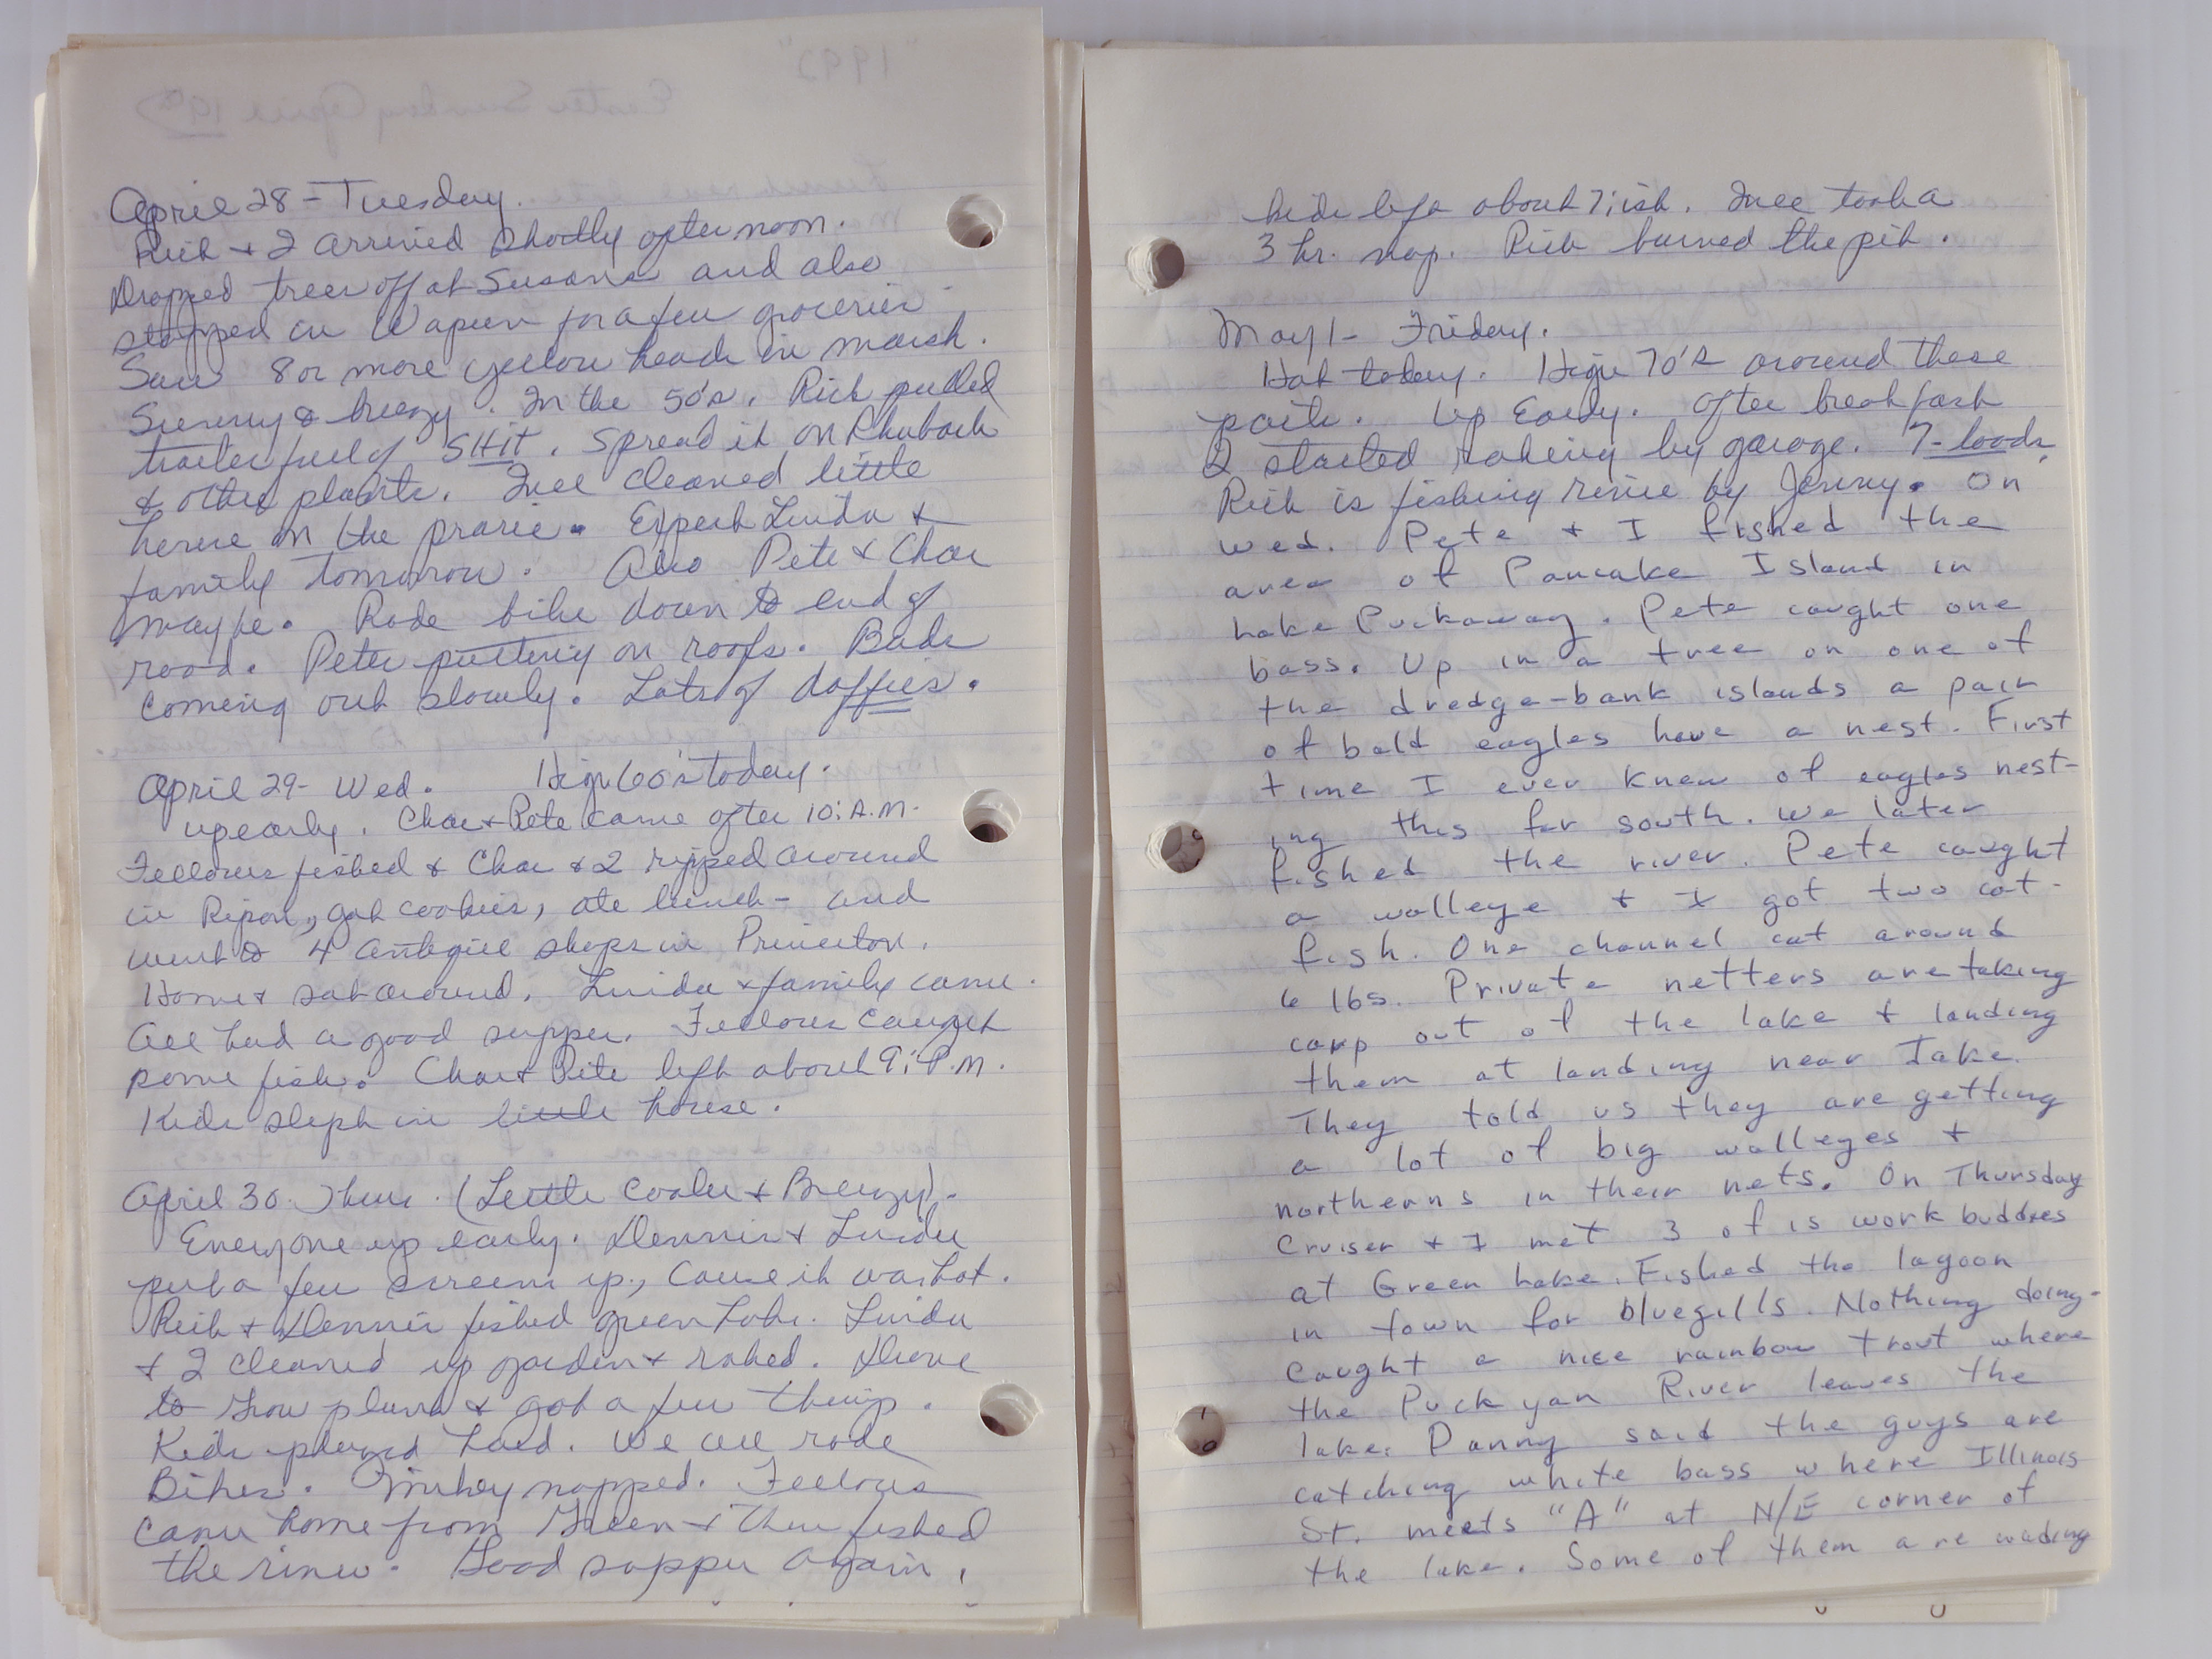 April 28 - Tuesday.
Rich + I arrived shortly after noon.
Dropped trees off at Susans and also
stopped in Waupun for a few groceries
Saw 8 or more yellow heads in marsh.
Sunny & breezy. In the 50's. Rich pulled
trailer full of SHIT. Spread it on Rhubarb
& other plants. Jill cleaned little
house on the prarie. Expect Linda +
family tomorrow. Also Pete + Char
maybe. Rode bike down to end of
road. Peter puttering on roofs. Buds
coming out slowly. Lots of daffies.
April 29 - Wed. High 60's today.
up early. Char + Pete came after 10: A.M.
Fellows fished & Char & I ripped around
in Ripon, got cookies, ate lunch - and
went to 4 antique shops in Princeton.
Home + sat around. Linda + family came.
All had a good supper. Fellows caught
some fish. Char + Pete left about 9: P.M.
Kids slept in little house.
April 30. Thur. (Little cooler + Breezy).
Everyone up early. Dennis + Linda
put a few screens up, cause it was hot.
Rich + Dennis fished green Lake. Linda
+ I cleaned up garden + raked. Drove
to Grow plants & got a few things.
Kids played hard. We all rode
Bikes. Mikey napped. Fellows
came home from Green + then fished
the river. Good supper again,
"1992"
Easter Sunday April 19
kids left about 7:ish. Jill took a
3 hr. nap. Rich burned the pit.
May 1 - Friday.
Hot today. High 70's around these
parts. Up Early. After breakfast
I started raking by garage. 7-loads.
Rich is fishing river by Jenny. On
wed. Pete + I fished the
area of Pancake Island in
Lake Puckaway. Pete caught one
bass. Up in a tree on one of
the dredge-bank islands a pair
of bald eagles have a nest. First
time I ever knew of eagles nest-
ing this far south. We later
fished the river. Pete caught
a walleye + I got two cat-
fish. One channel cat around
6 lbs. Private netters are taking
carp out of the lake + landing
them at landing near Jake.
They told us they are getting
a lot of big walleyes +
northerns in their nets. On Thursday
Cruiser + I met 3 of is work buddies
at Green Lake. Fished the lagoon
in town for bluegills. Nothing doing.
Caught a nice rainbow trout where
the Puckyan River leaves the
lake. Danny said the guys are
catching white bass where Illinois
St. meets "A" at N/E corner of
the lake. Some of them are wading